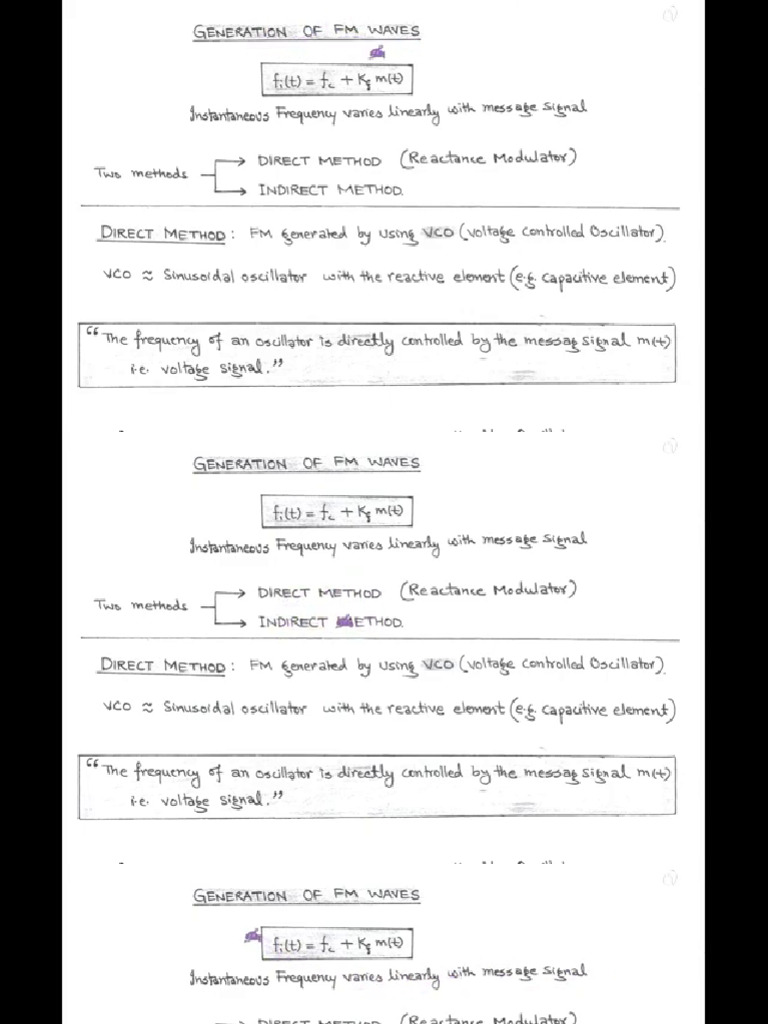 GENERATION OF FM WAVES
fi(t) = fc + Kf m(t)
Instantaneous Frequency varies linearly with message signal
Two methods
DIRECT METHOD (Reactance Modulator)
INDIRECT METHOD.
DIRECT METHOD: FM generated by using VCO (voltage controlled Oscillator).
VCO ≈ Sinusoidal oscillator with the reactive element (e.g. capacitive element)
"The frequency of an oscillator is directly controlled by the messag signal m(t)
i.e. voltage signal."
GENERATION OF FM WAVES
fi(t) = fc + Kf m(t)
Instantaneous Frequency varies linearly with message signal
Two methods
DIRECT METHOD (Reactance Modulator)
INDIRECT ETHOD.
DIRECT METHOD: FM generated by using VCO (voltage controlled Oscillator).
VCO ≈ Sinusoidal oscillator with the reactive element (e.g. capacitive element)
"The frequency of an oscillator is directly controlled by the messag signal m(t)
i.e. voltage signal."
GENERATION OF FM WAVES
fi(t) = fc + Kf m(t)
Instantaneous Frequency varies linearly with message signal
DIRECT METHOD (Reactance Modulator)